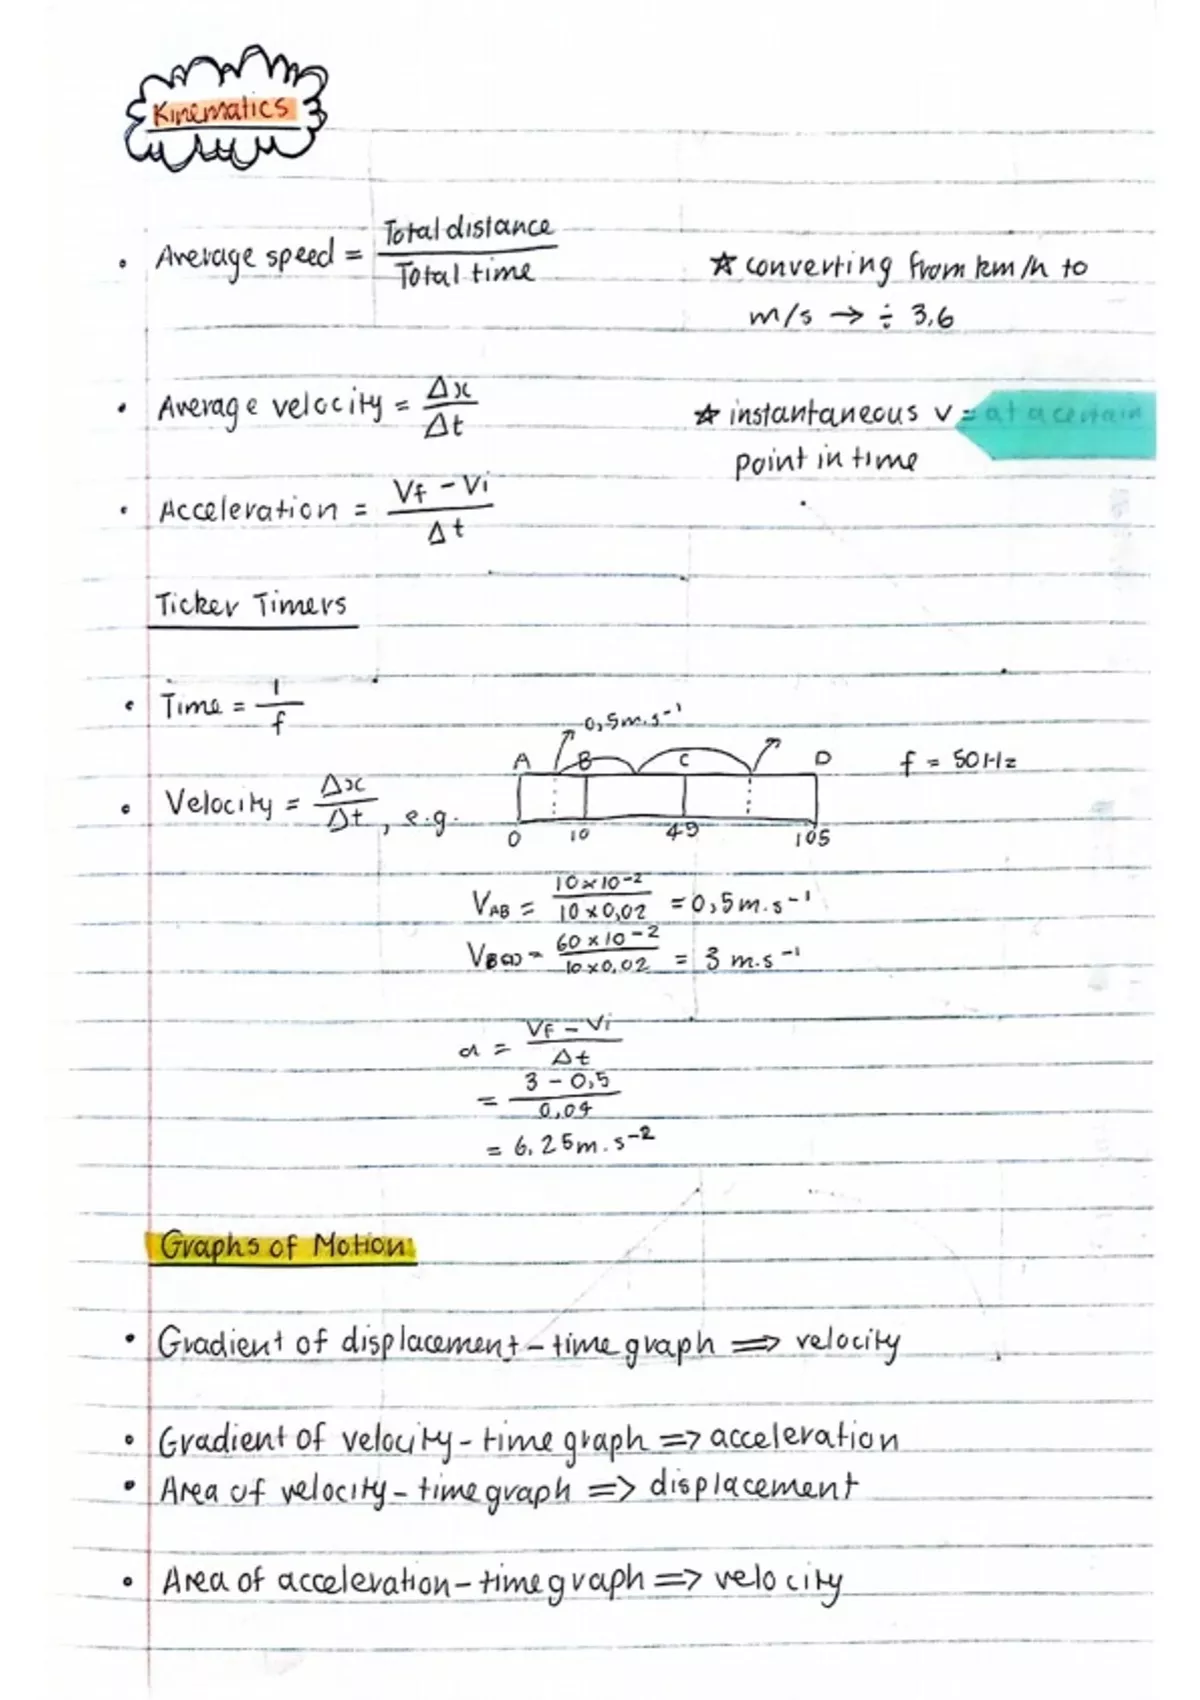 Kinematics
• Average speed = Total distance / Total time
☆ converting from km/h to
m/s → ÷ 3,6
• Average velocity = Δx / Δt
☆ instantaneous v = at a certain
point in time
• Acceleration = Vf - Vi / Δt
Ticker Timers
• Time = 1 / f
0,5m.s⁻¹
A B C D
f = 50Hz
• Velocity = Δx / Δt, e.g.
0 10 49 105
V_AB = 10 × 10⁻² / 10 × 0,02 = 0,5m.s⁻¹
60 × 10⁻² / 10 × 0,02 = 3 m.s⁻¹
a = Vf - Vi / Δt
= 3 - 0,5 / 0,04
= 6,25m.s⁻²
Graphs of Motion
• Gradient of displacement - time graph ⇒ velocity
• Gradient of velocity - time graph ⇒ acceleration
• Area of velocity - time graph ⇒ displacement
• Area of acceleration - time graph ⇒ velocity